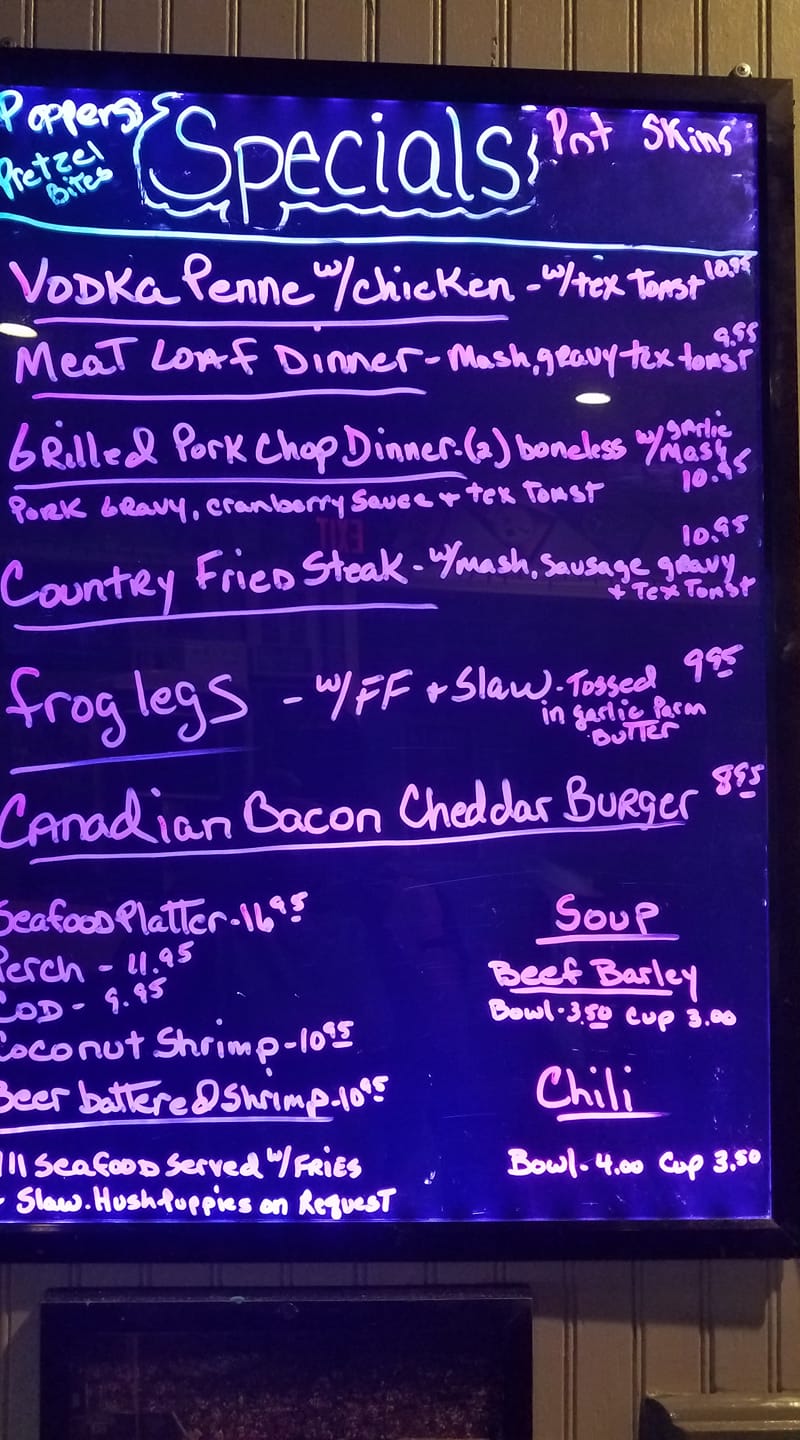 Poppers
Pretzel
Bites
Specials
Pot Skins
Vodka Penne w/chicken - w/tex Toast 10.95
Meat Loaf Dinner - Mash, gravy tex toast 9.95
Grilled Pork Chop Dinner - (2) boneless w/garlic Mash 10.95
Pork Gravy, cranberry sauce + tex Toast
Country Fried Steak - w/mash, Sausage gravy 10.95
+ Tex Toast
frog legs - w/FF + Slaw - Tossed 9.95
in garlic Parm
Butter
Canadian Bacon Cheddar Burger 8.95
Seafood Platter - 16.95
Perch - 11.95
Cod - 9.95
Coconut Shrimp - 10.95
Beer battered Shrimp - 10.95
All Seafood Served w/ Fries
+ Slaw. Hush Puppies on Request
Soup
Beef Barley
Bowl - 3.50 Cup 3.00
Chili
Bowl - 4.00 Cup 3.50
EXIT